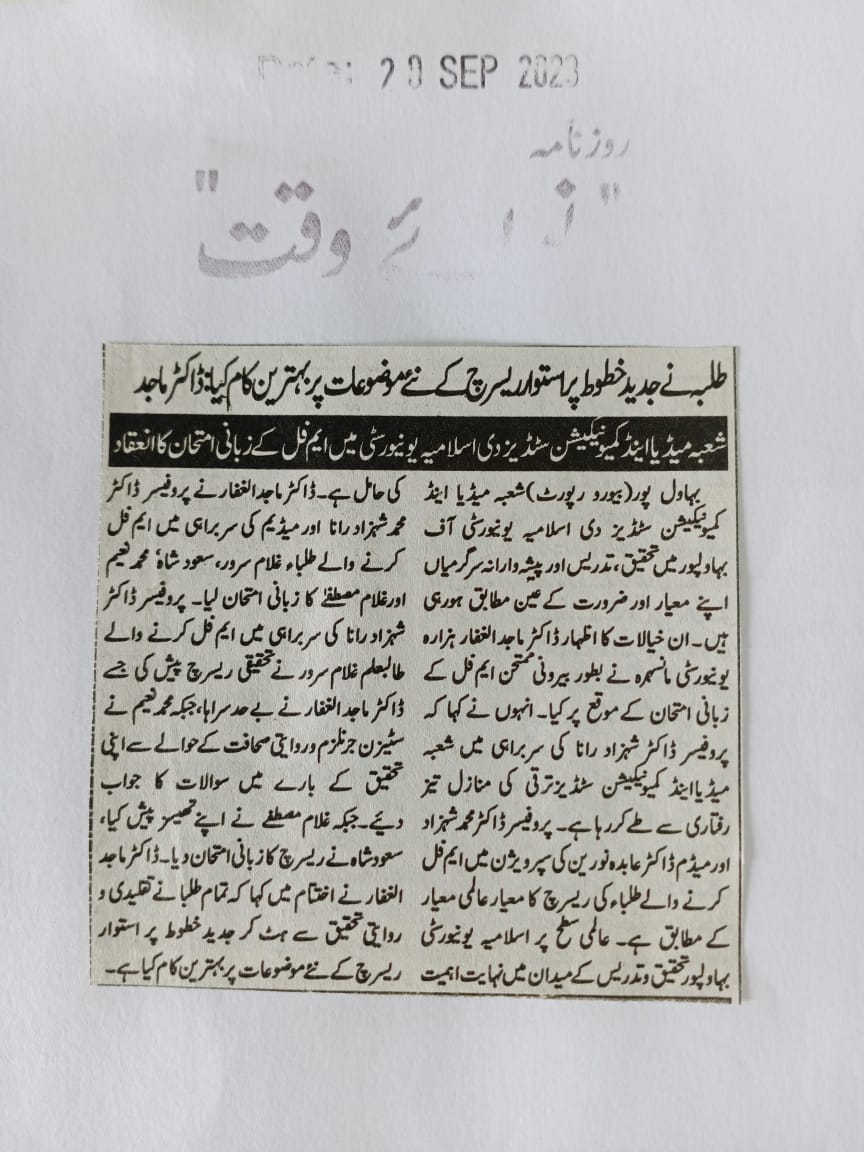 Date: 20 SEP 2023
روزنامہ
"نوائے وقت"
طلبہ نے جدید خطوط پر استوار ریسرچ کے نئے موضوعات پر بہترین کام کیا: ڈاکٹر ماجد
شعبہ میڈیا اینڈ کمیونیکیشن سٹڈیز دی اسلامیہ یونیورسٹی میں ایم فل کے زبانی امتحان کا انعقاد
بہاول پور (بیورو رپورٹ) شعبہ میڈیا اینڈ
کمیونیکیشن سٹڈیز دی اسلامیہ یونیورسٹی آف
بہاولپور میں تحقیق، تدریس اور پیشہ وارانہ سرگرمیاں
اپنے معیار اور ضرورت کے عین مطابق ہو رہی
ہیں۔ ان خیالات کا اظہار ڈاکٹر ماجد الغفار ہزارہ
یونیورسٹی مانسہرہ نے بطور بیرونی ممتحن ایم فل کے
زبانی امتحان کے موقع پر کیا۔ انہوں نے کہا کہ
پروفیسر ڈاکٹر شہزاد رانا کی سربراہی میں شعبہ
میڈیا اینڈ کمیونیکیشن سٹڈیز ترقی کی منازل تیز
رفتاری سے طے کر رہا ہے۔ پروفیسر ڈاکٹر محمد شہزاد
اور میڈم ڈاکٹر عابدہ نورین کی سپرویژن میں ایم فل
کرنے والے طلباء کی ریسرچ کا معیار عالمی معیار
کے مطابق ہے۔ عالمی سطح پر اسلامیہ یونیورسٹی
بہاولپور تحقیق و تدریس کے میدان میں نہایت اہمیت
کی حامل ہے۔ ڈاکٹر ماجد الغفار نے پروفیسر ڈاکٹر
محمد شہزاد رانا اور میڈیم کی سربراہی میں ایم فل
کرنے والے طلباء غلام سرور، سعود شاہ' محمد نعیم
اور غلام مصطفےٰ کا زبانی امتحان لیا۔ پروفیسر ڈاکٹر
شہزاد رانا کی سربراہی میں ایم فل کرنے والے
طالبعلم غلام سرور نے تحقیقی ریسرچ پیش کی جسے
ڈاکٹر ماجد الغفار نے بے حد سراہا، جبکہ محمد نعیم نے
سٹیزن جرنلزم و روایتی صحافت کے حوالے سے اپنی
تحقیق کے بارے میں سوالات کا جواب
دیئے۔ جبکہ غلام مصطفے نے اپنے تھیسز پیش کیا،
سعود شاہ نے ریسرچ کا زبانی امتحان دیا۔ ڈاکٹر ماجد
الغفار نے اختتام میں کہا کہ تمام طلبا نے تقلیدی و
روایتی تحقیق سے ہٹ کر جدید خطوط پر استوار
ریسرچ کے نئے موضوعات پر بہترین کام کیا ہے۔